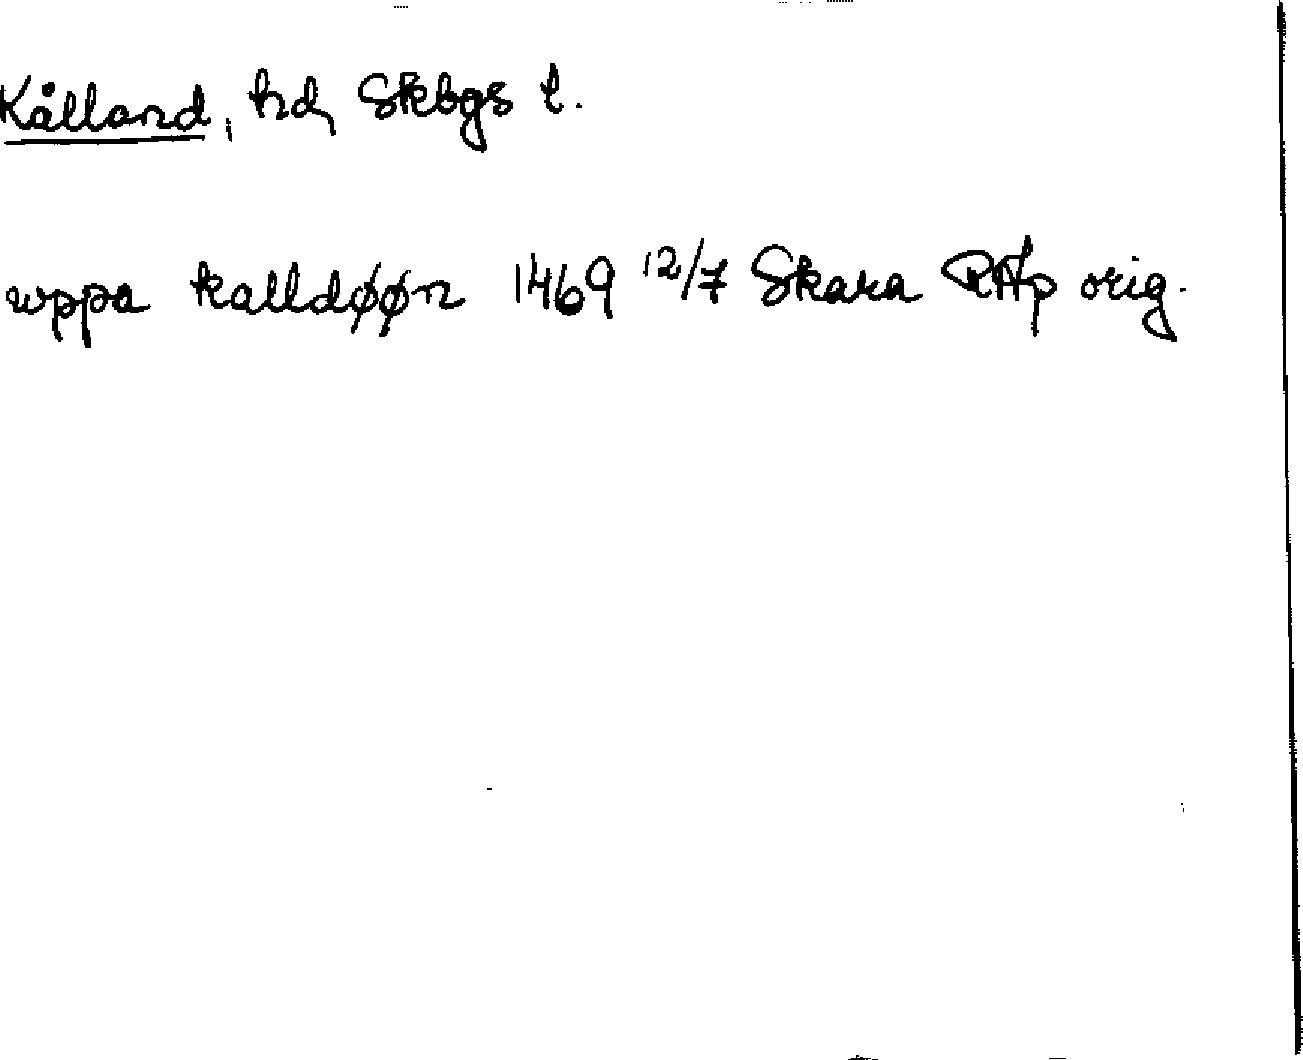 Kålland, hd, Skbgs l.
wppa kalldøøn 1469 12/7 Skara RAp orig.